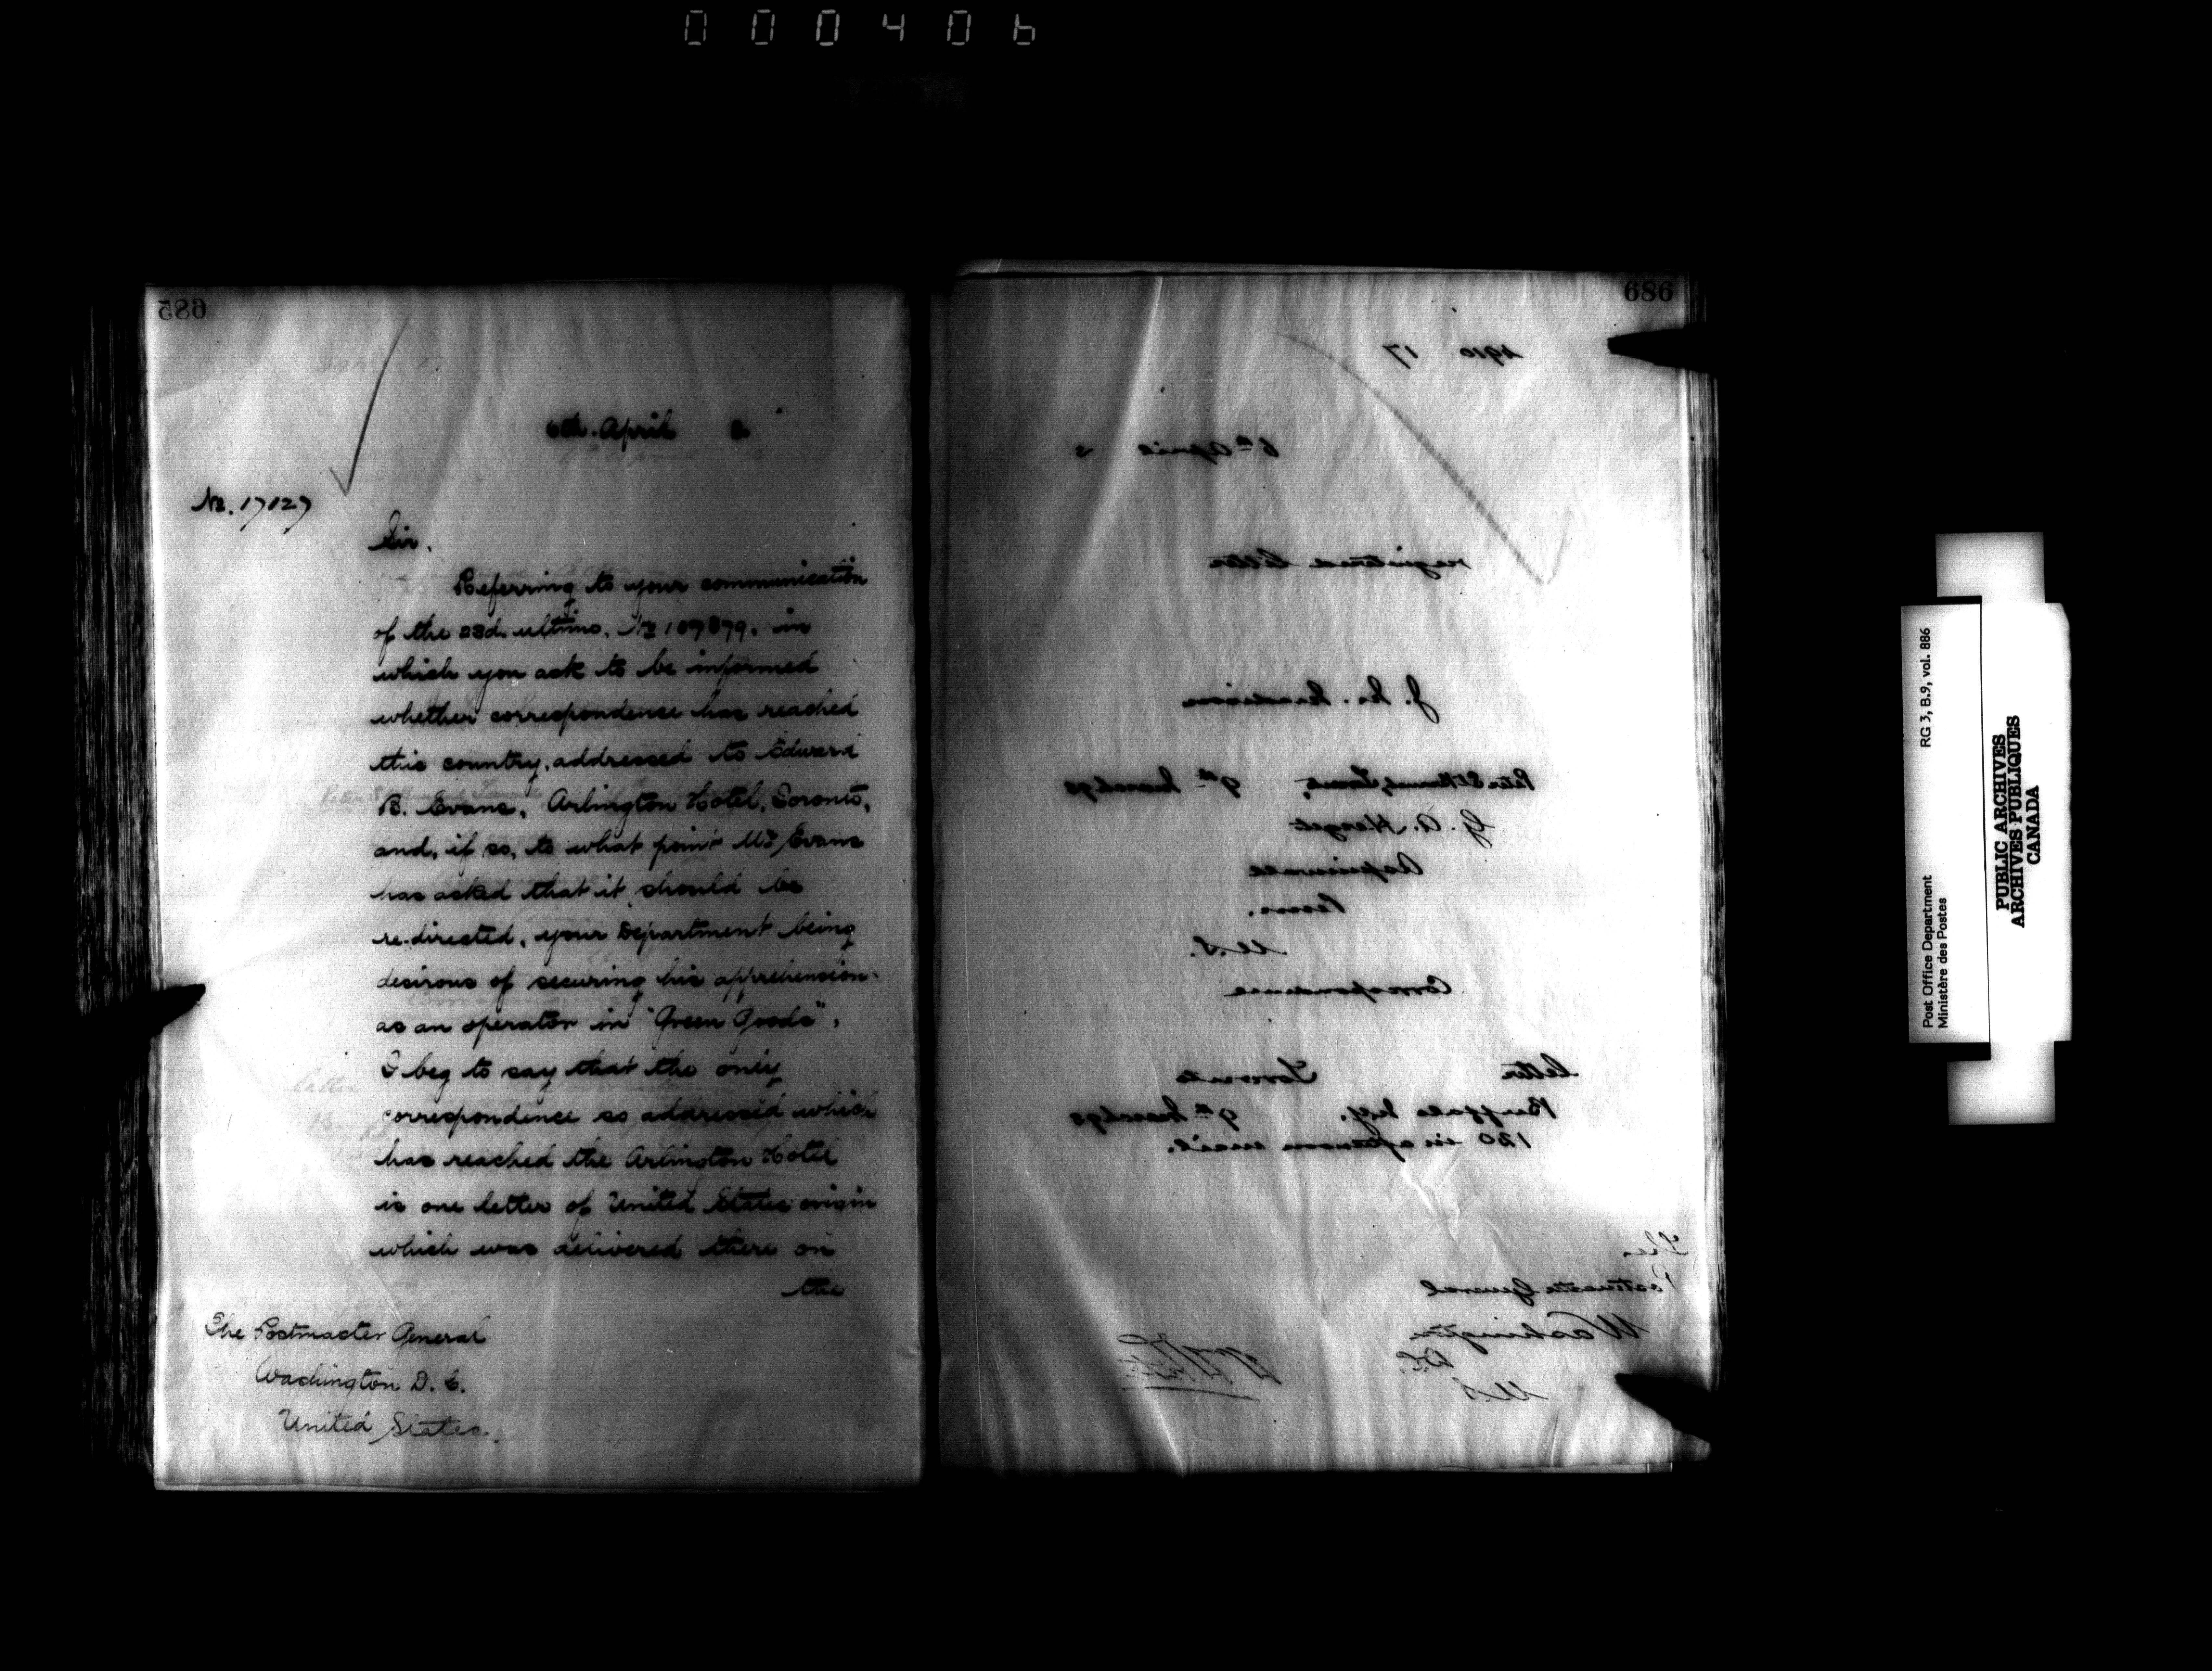 000406
685
6th. April 3
No. 17127
Sir.
Referring to your communication
of the 23d. ultimo. No 109879. in
which you ask to be informed
whether correspondence has reached
this country, addressed to Edward
B. Evans, Arlington Hotel, Toronto,
and, if so, to what point Mr Evans
has asked that it should be
re-directed, your Department being
desirous of securing his apprehension
as an operator in "Green Goods",
I beg to say that the only
correspondence so addressed which
has reached the Arlington Hotel
is one letter of United States origin
which was delivered there on
the
The Postmaster General
Washington D. C.
United States.
686
1910 17
6th April 3
registered letter
9th March 93
G. A. Herget
Penn.
U.S.
Correspondence
letter Toronto
Buffalo N.Y. 9th March 93
120 in afternoon mail.
The
Postmaster General
Washington
D.C.
U.S
Post Office Department RG 3, B.9, vol. 886
Ministère des Postes
PUBLIC ARCHIVES
ARCHIVES PUBLIQUES
CANADA